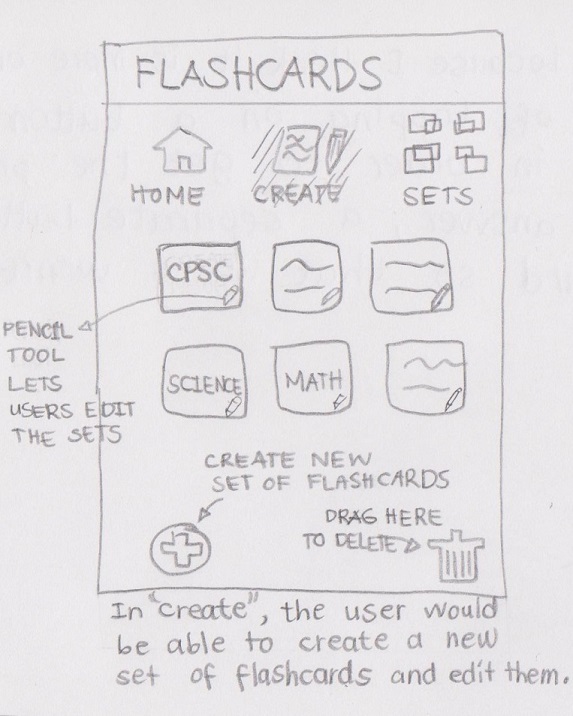 FLASHCARDS
HOME CREATE SETS
CPSC
PENCIL
TOOL
LETS
USERS EDIT
THE SETS
SCIENCE MATH
CREATE NEW
SET OF FLASHCARDS
DRAG HERE
TO DELETE
In "create", the user would
be able to create a new
set of flashcards and edit them.